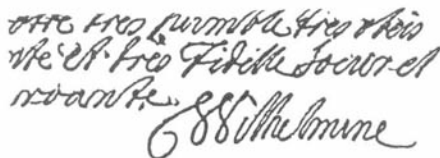 otre tres humble tres obeis
nte et très Fidelle Soeur et
rvante
Wilhelmine